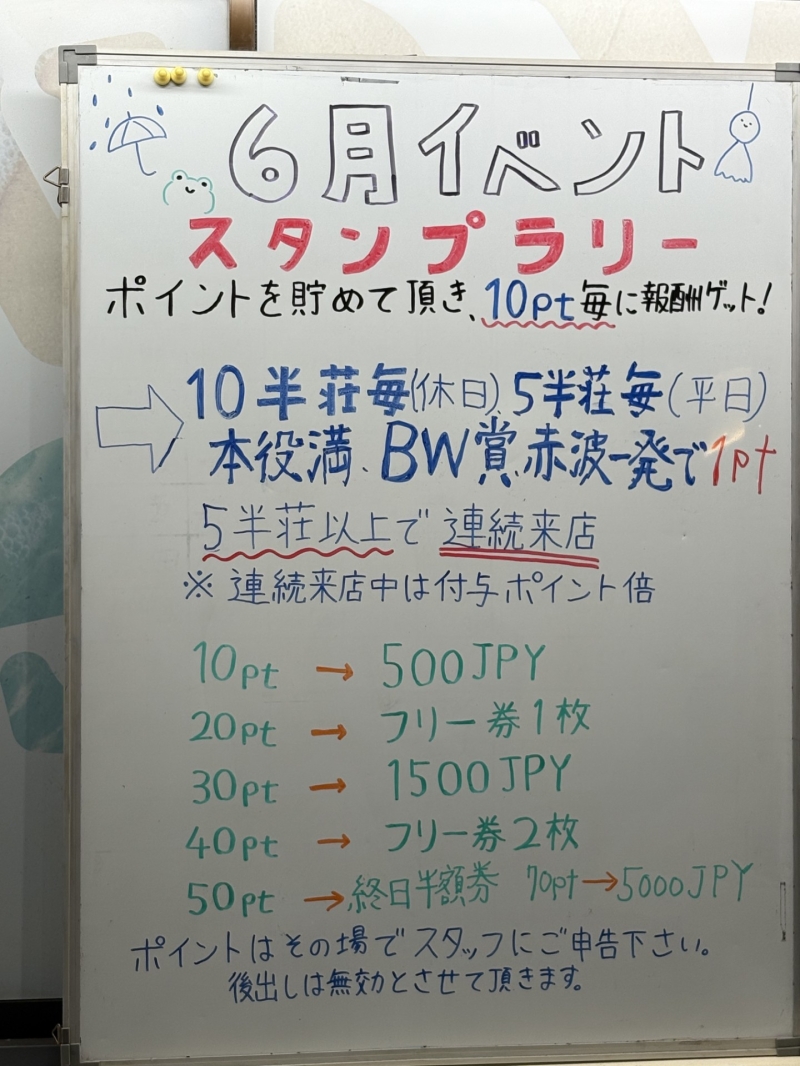 6月イベント
スタンプラリー
ポイントを貯めて頂き、10pt毎に報酬ゲット!
10半荘毎(休日)、5半荘毎(平日)
本役満、BW賞、赤波一発で1pt
5半荘以上で連続来店
※連続来店中は付与ポイント倍
10pt → 500JPY
20pt → フリー券1枚
30pt → 1500JPY
40pt → フリー券2枚
50pt → 終日半額券 70pt → 5000JPY
ポイントはその場でスタッフにご申告下さい。
後出しは無効とさせて頂きます。